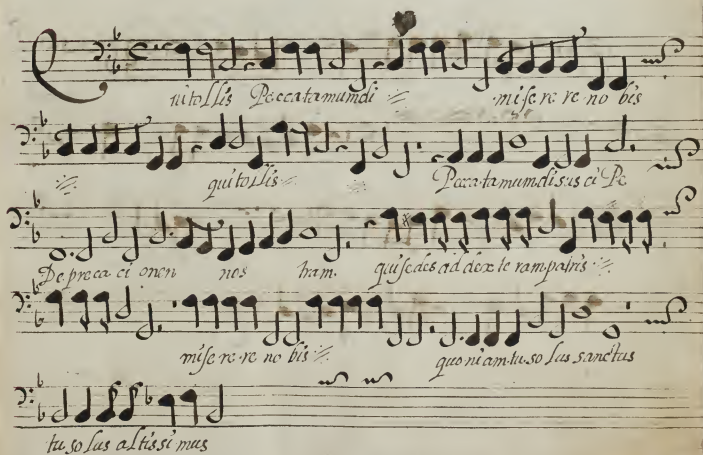 uitollis Peccatamumdi mise re re no bis
quitollis Peccatamumdisus ci Pe
De preca ci onen nos tram. quisedes ad dexte rampatris
mise re re no bis quo niam tu so lus sanctus
tu so lus altissi mus